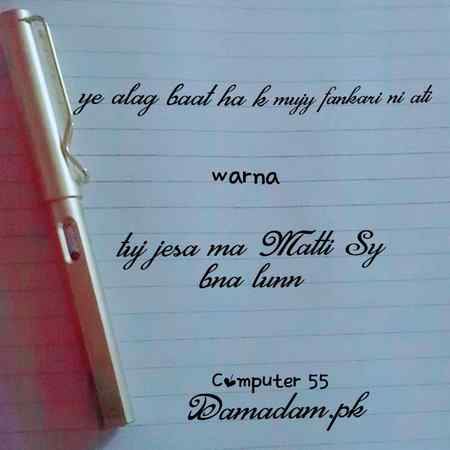 ye alag baat ha k mujy fankari ni ati
warna
tuj jesa ma Matti Sy
bna lunn
Computer 55
Damadam.pk